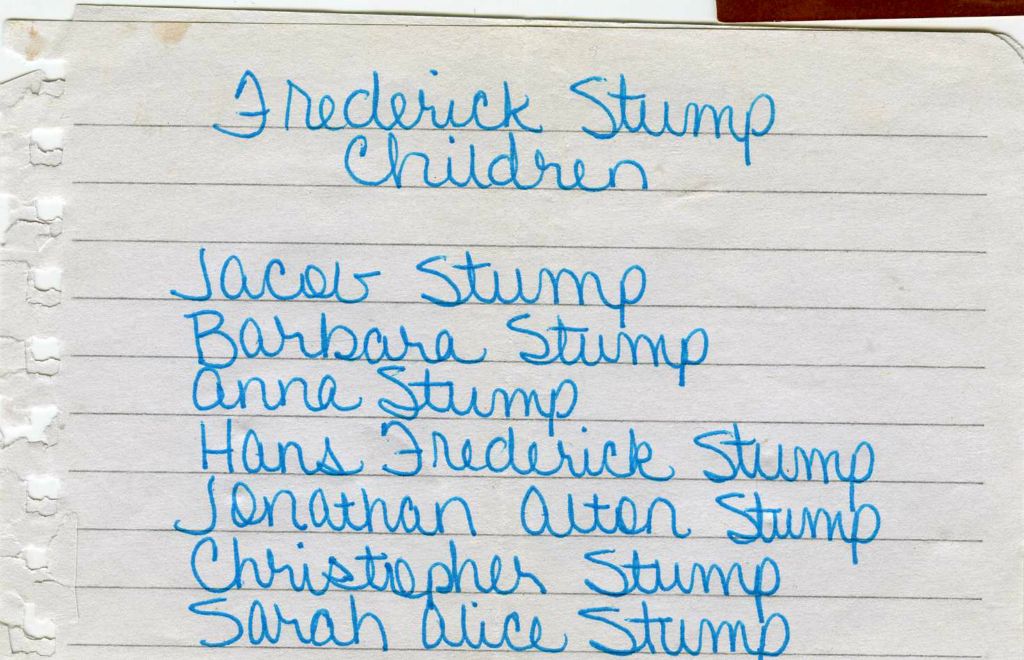 Frederick Stump
Children
Jacob Stump
Barbara Stump
Anna Stump
Hans Frederick Stump
Jonathan Alton Stump
Christopher Stump
Sarah Alice Stump